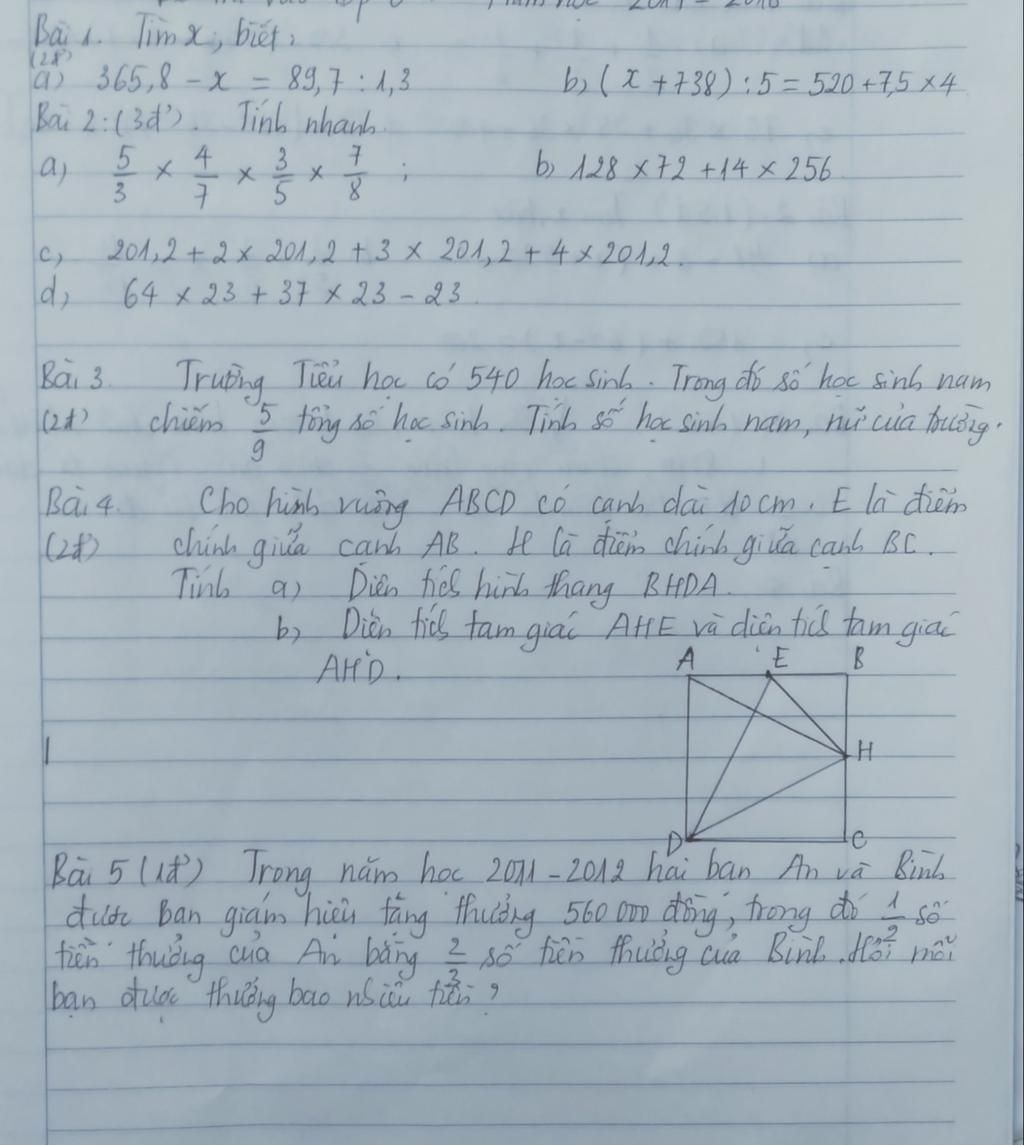 Năm học 2017 - 2018
Bài 1. Tìm x, biết,
(2đ)
a) 365,8 - x = 89,7 : 1,3 b) (x + 738) : 5 = 520 + 7,5 × 4
Bài 2: (3đ). Tính nhanh.
a) 5/3 × 4/7 × 3/5 × 7/8 ; b) 128 × 72 + 14 × 256
c) 201,2 + 2 × 201,2 + 3 × 201,2 + 4 × 201,2.
d) 64 × 23 + 37 × 23 - 23.
Bài 3. Trường Tiểu học có 540 học sinh. Trong đó số học sinh nam
(2đ) chiếm 5/9 tổng số học sinh. Tính số học sinh nam, nữ của trường.
Bài 4. Cho hình vuông ABCD có cạnh dài 10cm. E là điểm
(2đ) chính giữa cạnh AB. H là điểm chính giữa cạnh BC.
Tính a) Diện tích hình thang BHDA.
b) Diện tích tam giác AHE và diện tích tam giác
AHD.
A E B
H
D C
Bài 5 (1đ) Trong năm học 2011 - 2012 hai bạn An và Bình
được ban giám hiệu tặng thưởng 560 000 đồng, trong đó 1/2 số
tiền thưởng của An bằng 2/3 số tiền thưởng của Bình. Hỏi mỗi
bạn được thưởng bao nhiêu tiền?